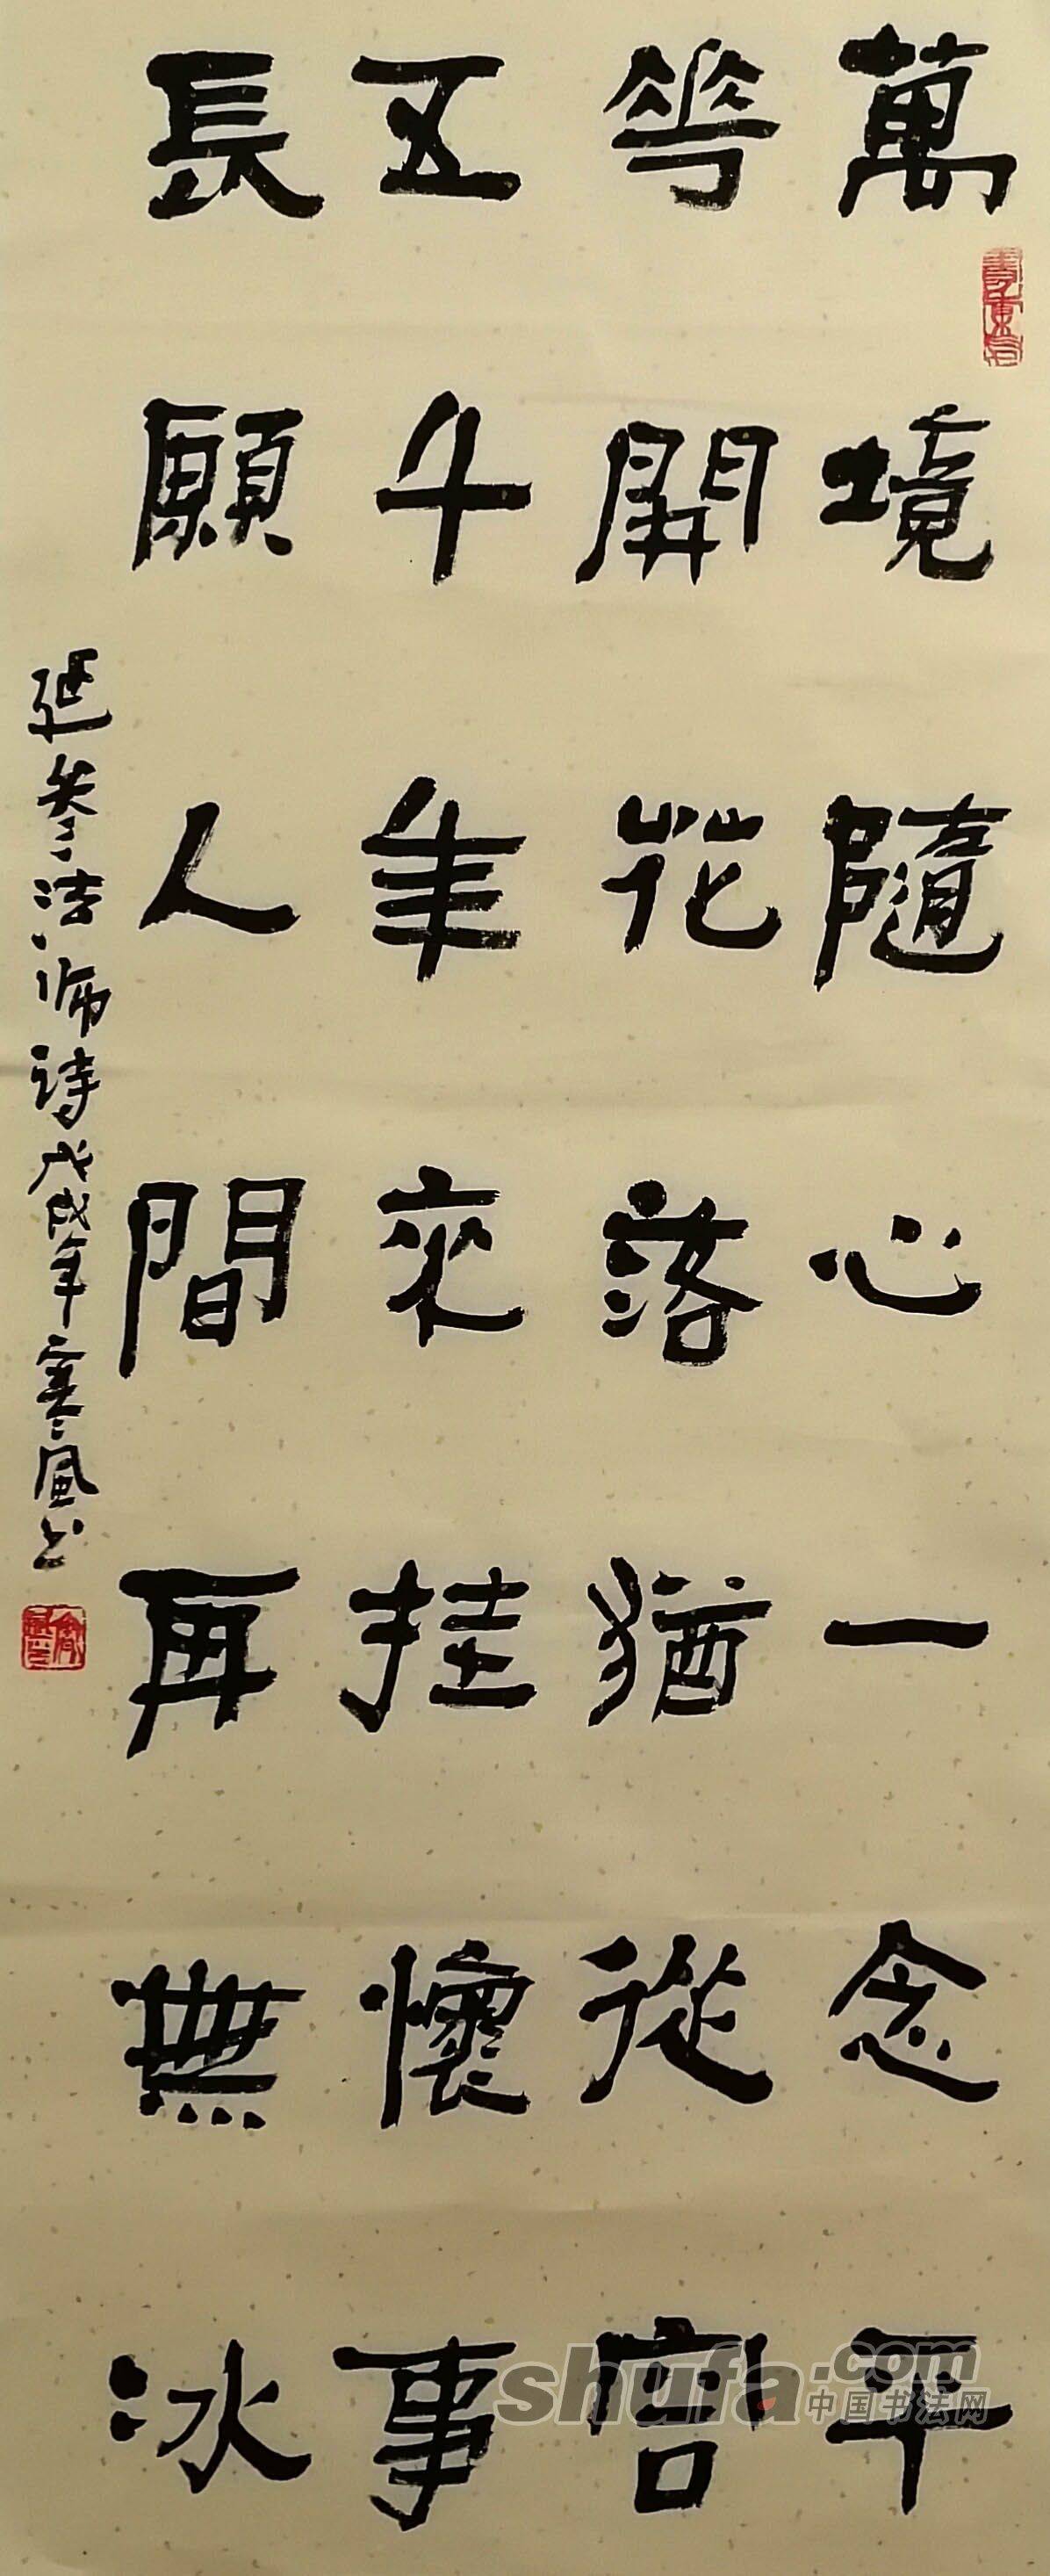 萬境隨心一念平
花開花落猶從容
五千年來挂懷事
長願人間再無冰
延參法師詩戊戌年寒風书
shufa.com
中国书法网